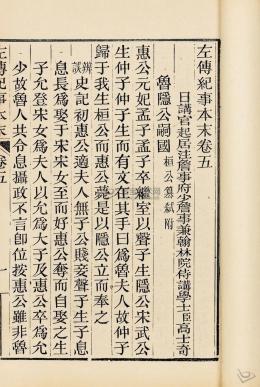 左傳紀事本末卷五
日講官起居注詹事府少詹事兼翰林院侍講學士臣高士奇
魯隱公嗣國 桓公簒弑附
惠公元妃孟子孟子卒繼室以聲子生隱公宋武公
生仲子仲子生而有文在其手曰爲魯夫人故仲子
歸于我生桓公而惠公薨是以隱公立而奉之
辨誤史記初惠公適夫人無子公賤妾聲子生子息
息長爲娶于宋宋女至而好惠公奪而自娶之生
子允登宋女爲夫人以允爲大子及惠公卒爲允
少故魯人共令息攝政不言卽位按惠公雖非魯
左傳紀事本末 卷五 一